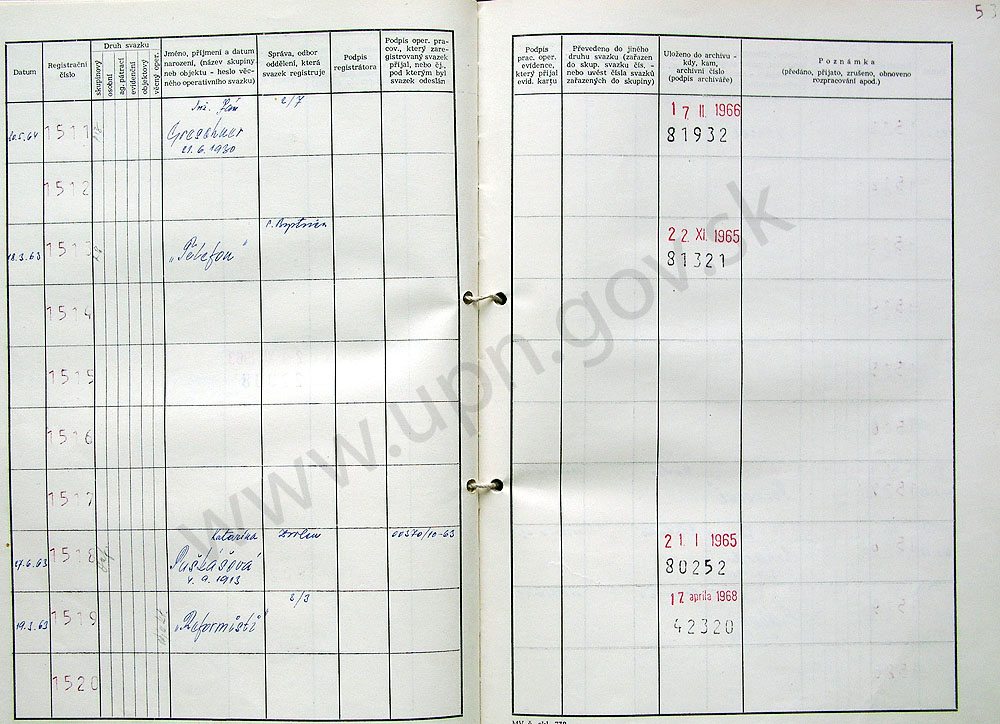 53
Datum
Registrační číslo
Druh svazku
skupinový
osobní
ag. pátrací
evidenční
objektový
věcný oper.
Jméno, příjmení a datum
narození, (název skupiny
neb objektu - heslo věc-
ného operativního svazku)
Správa, odbor
oddělení, která
svazek registruje
Podpis
registrátora
Podpis oper. pra-
cov., který zare-
gistrovaný svazek
přijal, nebo čj.,
pod kterým byl
svazek odeslán
Podpis
prac. oper.
evidence,
který přijal
evid. kartu
Převedeno do jiného
druhu svazku (zařazen
do skup. svazku čís. -
nebo uvést čísla svazků
zařazených do skupiny)
Uloženo do archivu -
kdy, kam,
archivní číslo
(podpis archiváře)
Poznámka
(předáno, přijato, zrušeno, obnoveno
rozpracování apod.)
1511
Greschner
21.6.1930
2/7
17 II. 1966
81932
1512
18.3.63
1513
22 XI. 1965
81321
1514
1515
1516
1517
27.6.63
1518
Katarína
Puškášová
4.9.1913
Zvolen
00370/10-63
21. I 1965
80252
19.3.63
1519
„Reformisti"
2/3
17. apríla 1968
42320
1520
www.upn.gov.sk